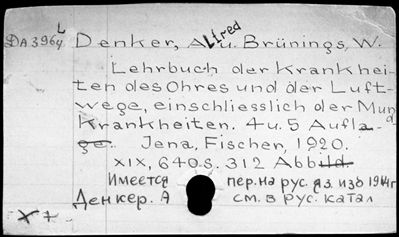 L
DA 3964 Denker, Alfred u. Brünings, W.
Lehrbuch der Krankhei-
ten des Ohres und der Luft-
wege, einschliesslich der Mund
Krankheiten. 4 u. 5 Aufla-
ge. Jena, Fischer, 1920.
XIX, 640 S. 312 Abbild.
Имеется пер. на рус. яз. изд 1914г
Денкер. А см. в рус. катал